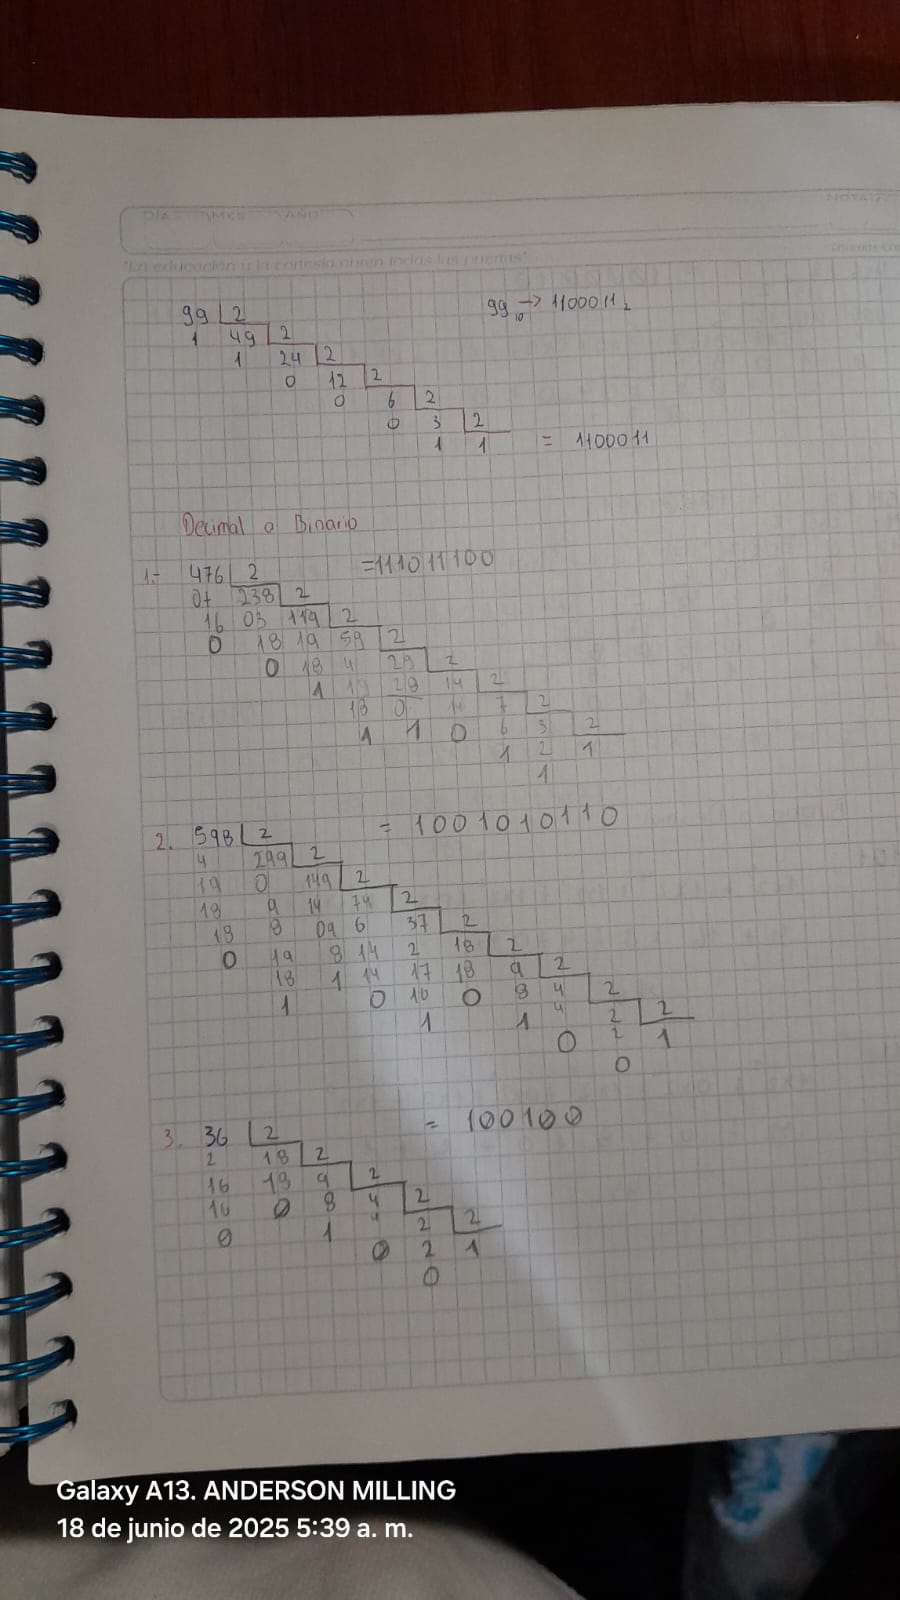 DIA MES AÑO NOTA
"La educación y la cortesía abren todas las puertas"
99 2 99₁₀ → 1100011₂
1 49 2
1 24 2
0 12 2
0 6 2
0 3 2
1 1 = 1100011
Decimal a Binario
1.- 476 2 =111011100
07 238 2
16 03 119 2
0 18 19 59 2
0 18 4 29 2
1 19 29 14 2
18 0 14 7 2
1 1 0 6 3 2
1 2 1
1
2. 598 2 = 1001010110
4 299 2
19 0 149 2
18 9 14 74 2
18 8 09 6 37 2
0 19 8 14 2 18 2
18 1 14 17 18 9 2
1 0 16 0 8 4 2
1 1 4 2 2
0 2 1
0
3. 36 2 = 100100
2 18 2
16 18 9 2
16 0 8 4 2
0 1 4 2 2
0 2 1
0
Galaxy A13. ANDERSON MILLING
18 de junio de 2025 5:39 a. m.